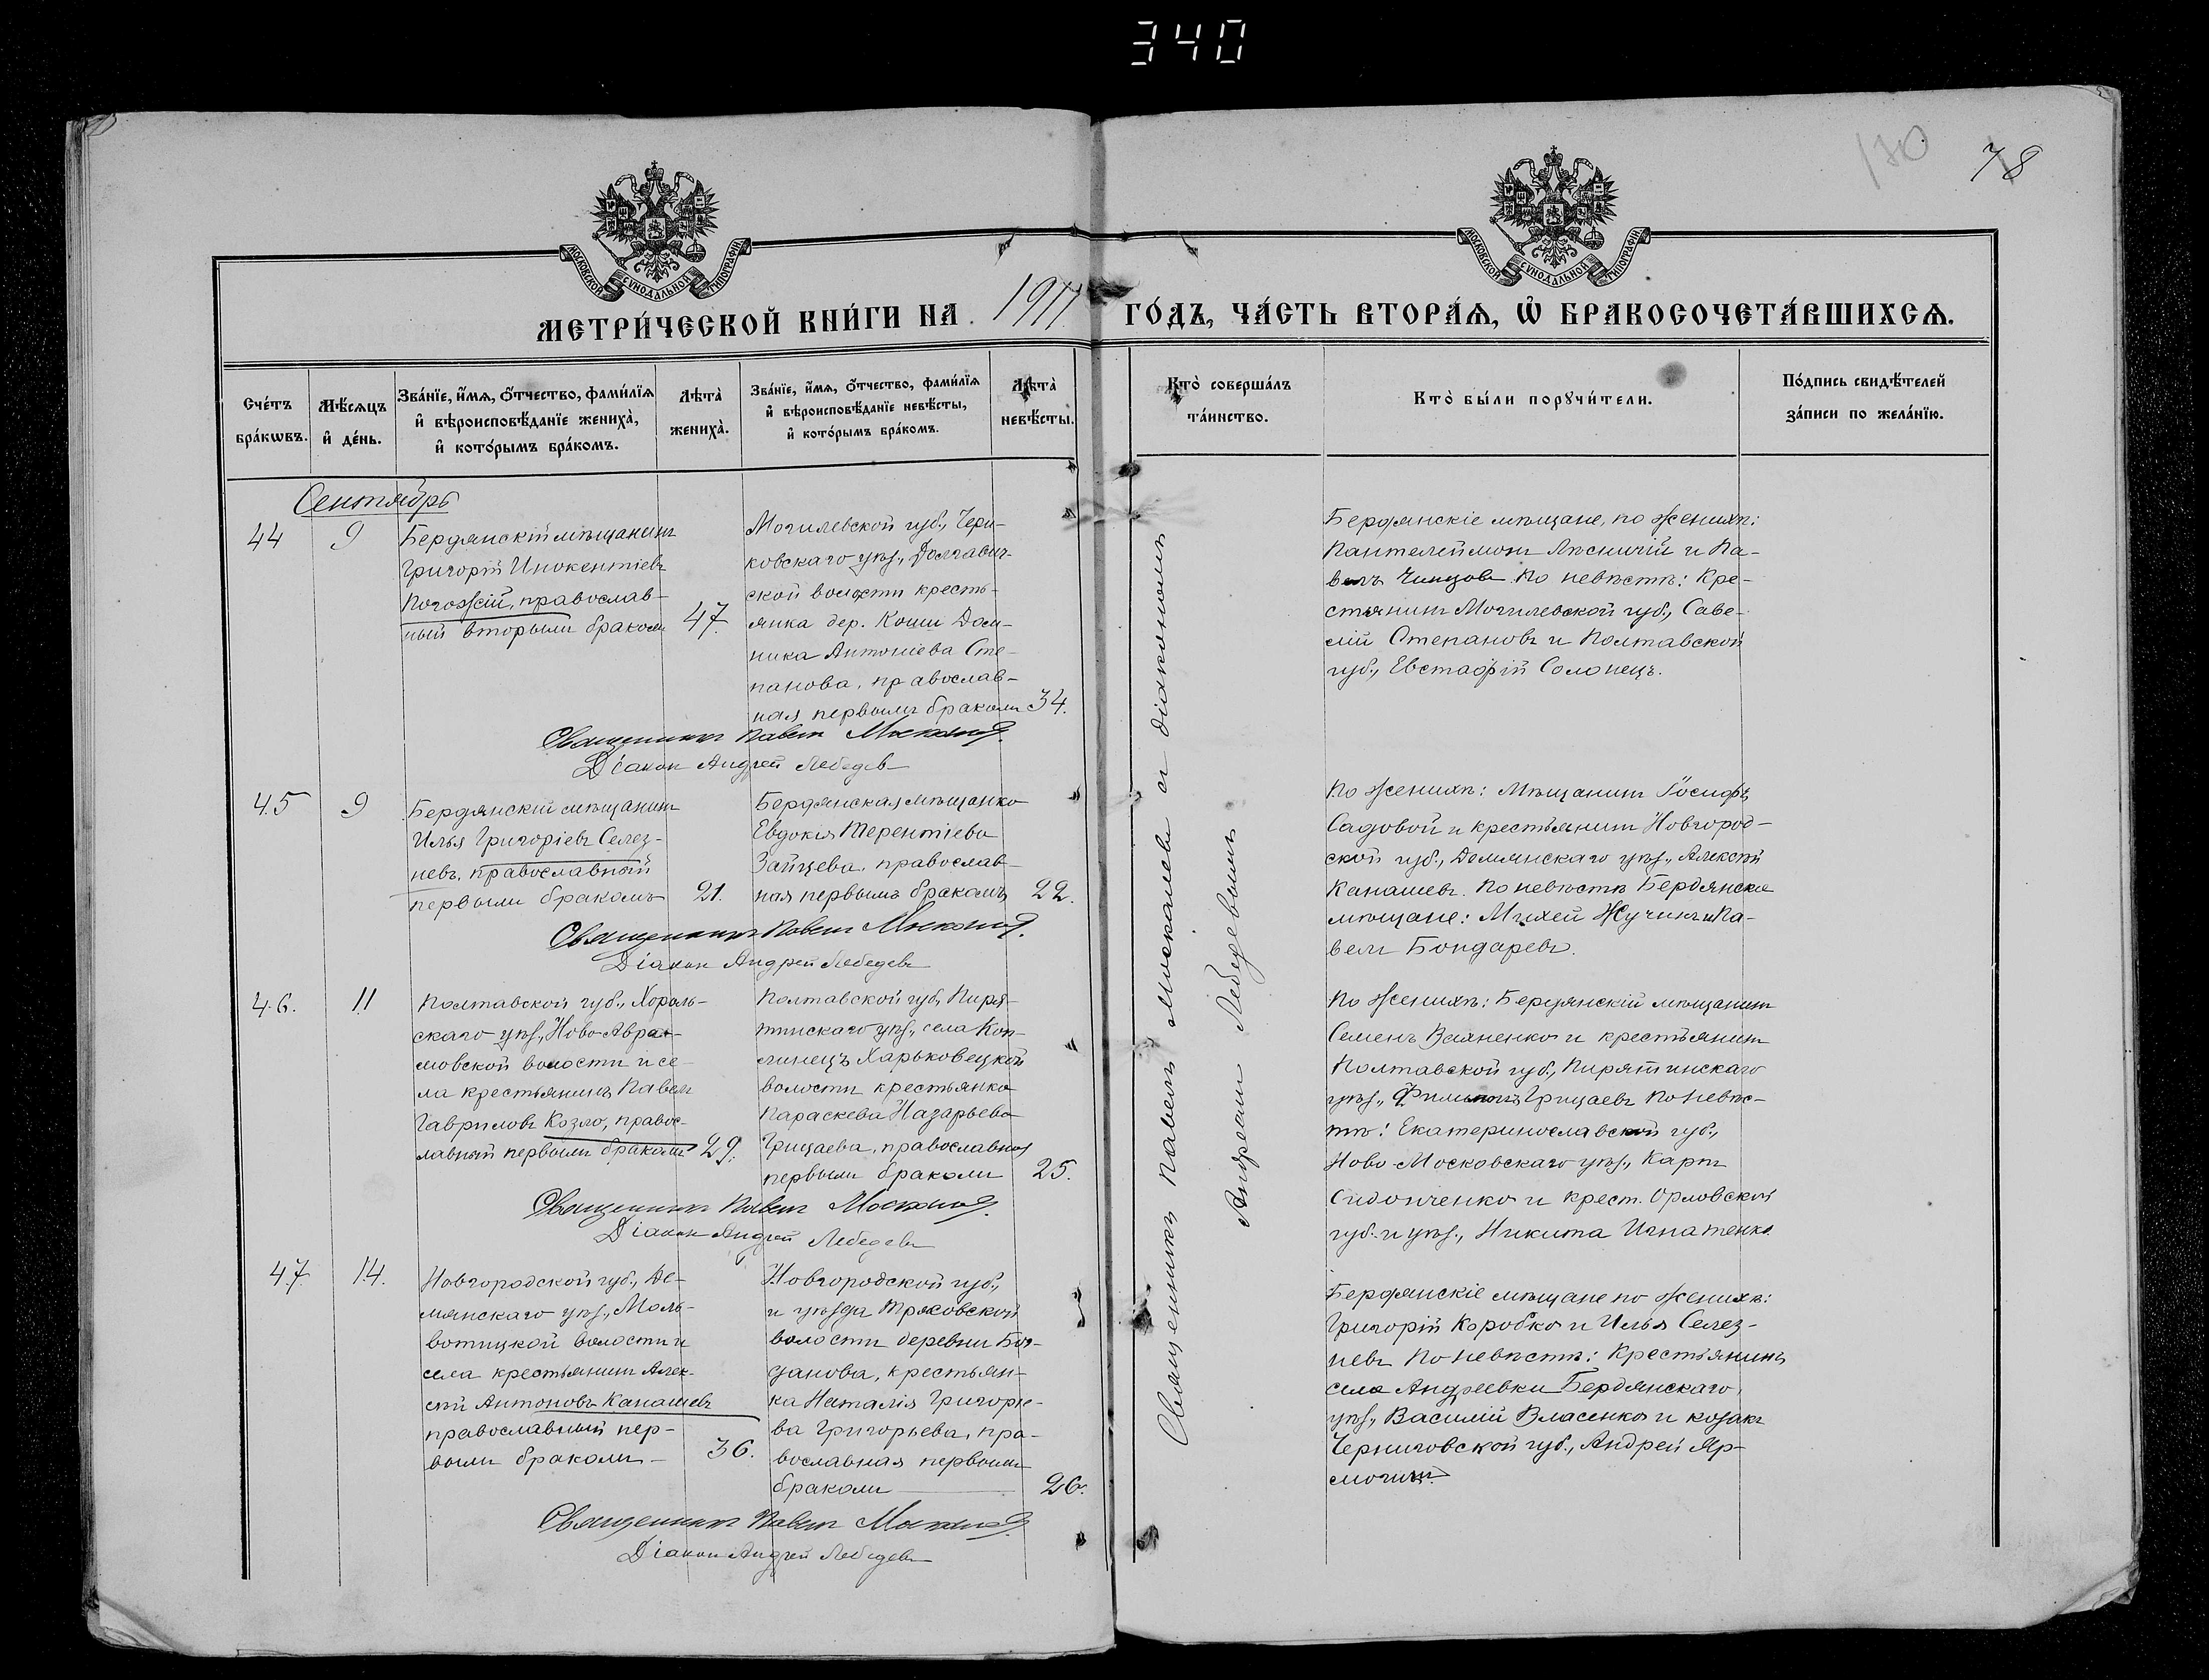 340
170
78
МОСКОВСКОЙ СѴНОДАЛЬНОЙ ТИПОГРАФІИ
МОСКОВСКОЙ СѴНОДАЛЬНОЙ ТИПОГРАФІИ
МЕТРИ́ЧЕСКОЙ КНИ́ГИ НА 1911 ГО́ДЪ, ЧА́СТЬ ВТОРА́Ѧ, Ѽ БРАКОСОЧЕТА́ВШИХСѦ.
Сче́тъ бра́кѡвъ.
Мѣ́сѧцъ и҆ де́нь.
Зва́нїе, и҆́мѧ, ѻ҆́тчество, фами́лїѧ и҆ вѣроисповѣ́данїе жениха̀, и҆ кото́рымъ бра́комъ.
Лѣта̀ жениха̀.
Зва́нїе, и҆́мѧ, ѻ҆́тчество, фами́лїѧ и҆ вѣроисповѣ́данїе невѣ́сты, и҆ кото́рымъ бра́комъ.
Лѣта̀ невѣ́сты.
Кто̀ соверша́лъ та́инство.
Кто̀ бы́ли порꙋчи́тели.
По́дпись свидѣ́телей за́писи по жела́нїю.
Сентябрь
44
9
Бердянскій мѣщанинъ
Григорій Инокентіевъ
Погожій, православ-
ный вторымъ бракомъ
47.
Могилевской губ., Чери-
ковскаго уѣз., Долгович-
ской волости кресть-
янка дер. Доми-
ника Антоніева Сте-
панова, православ-
ная первымъ бракомъ
34.
Бердянскіе мѣщане, по женихѣ:
Пантелеймонъ Лѣсничій и Па-
велъ По невѣстѣ: Кре-
стьянинъ Могилевской губ., Саве-
лій Степановъ и Полтавской
губ., Евстафій Солонецъ.
Священникъ Павелъ Москалевъ.
Діаконъ Андрей Лебедевъ
45
9
Бердянскій мѣщанинъ
Илья Григоріевъ Селез-
невъ, православный
первымъ бракомъ
21.
Бердянская мѣщанка
Евдокія Терентіева
Зайцева, православ-
ная первымъ бракомъ
22.
По женихѣ: Мѣщанинъ Іосифъ
Садовой и крестьянинъ Новгород-
ской губ., Демянскаго уѣз., Алексѣй
Канашевъ. По невѣстѣ Бердянскіе
мѣщане: Михей Жучинъ и Па-
велъ Бондаревъ.
Священникъ Павелъ Москалевъ.
Діаконъ Андрей Лебедевъ
46.
11
Полтавской губ., Хороль-
скаго уѣз., Ново-Авра-
мовской волости и се-
ла крестьянинъ Павелъ
Гавриловъ Козло, правос-
лавный первымъ бракомъ
29.
Полтавской губ., Пиря-
тинскаго уѣз., села Коп-
линецъ Харьковецкой
волости крестьянка
Параскева Назарьева
Грицаева, православная
первымъ бракомъ
25.
По женихѣ: Бердянскій мѣщанинъ
Семенъ и крестьянинъ
Полтавской губ., Пирятинскаго
уѣз., Грицаевъ По невѣс-
тѣ: Екатеринославской губ.,
Ново-Московскаго уѣз., Карпъ
Сидонченко и крест. Орловской
губ. и уѣз., Никита Игнатенко
Священникъ Павелъ Москалевъ.
Діаконъ Андрей Лебедевъ
47.
14.
Новгородской губ., Де-
мянскаго уѣз., Моль-
вотицкой волости и
села крестьянинъ Алек-
сѣй Антоновъ Канашевъ
православный пер-
вымъ бракомъ
36.
Новгородской губ.,
и уѣзда Трясовской
волости деревни Бог-
данова, крестьян-
ка Наталія Григорье-
ва Григорьева, пра-
вославная первымъ
бракомъ
26.
Бердянскіе мѣщане по женихѣ:
Григорій Коробко и Илья Селез-
невъ По невѣстѣ: Крестьянинъ
села Андреевки Бердянскаго
уѣз., Василій Власенко и козакъ
Черниговской губ., Андрей Яр-
Священникъ Павелъ Москалевъ.
Діаконъ Андрей Лебедевъ
Священникъ Павелъ Москалевъ съ діакономъ
Андреемъ Лебедевымъ